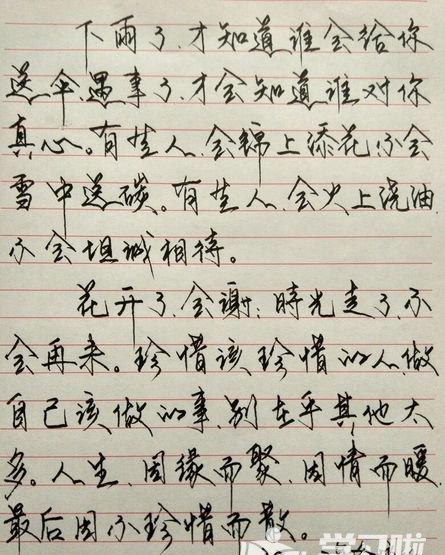 下雨了、才知道谁会给你
送伞、遇事了、才会知道谁对你
真心。有些人、会锦上添花、不会
雪中送碳。有些人、会火上浇油、
不会坦诚相待。
花开了、会谢；時光走了、不
会再来。珍惜该珍惜的人、做
自己该做的事、别在乎其他太
多。人生、因缘而聚、因情而暖、
最后因不珍惜而散。
学习啦